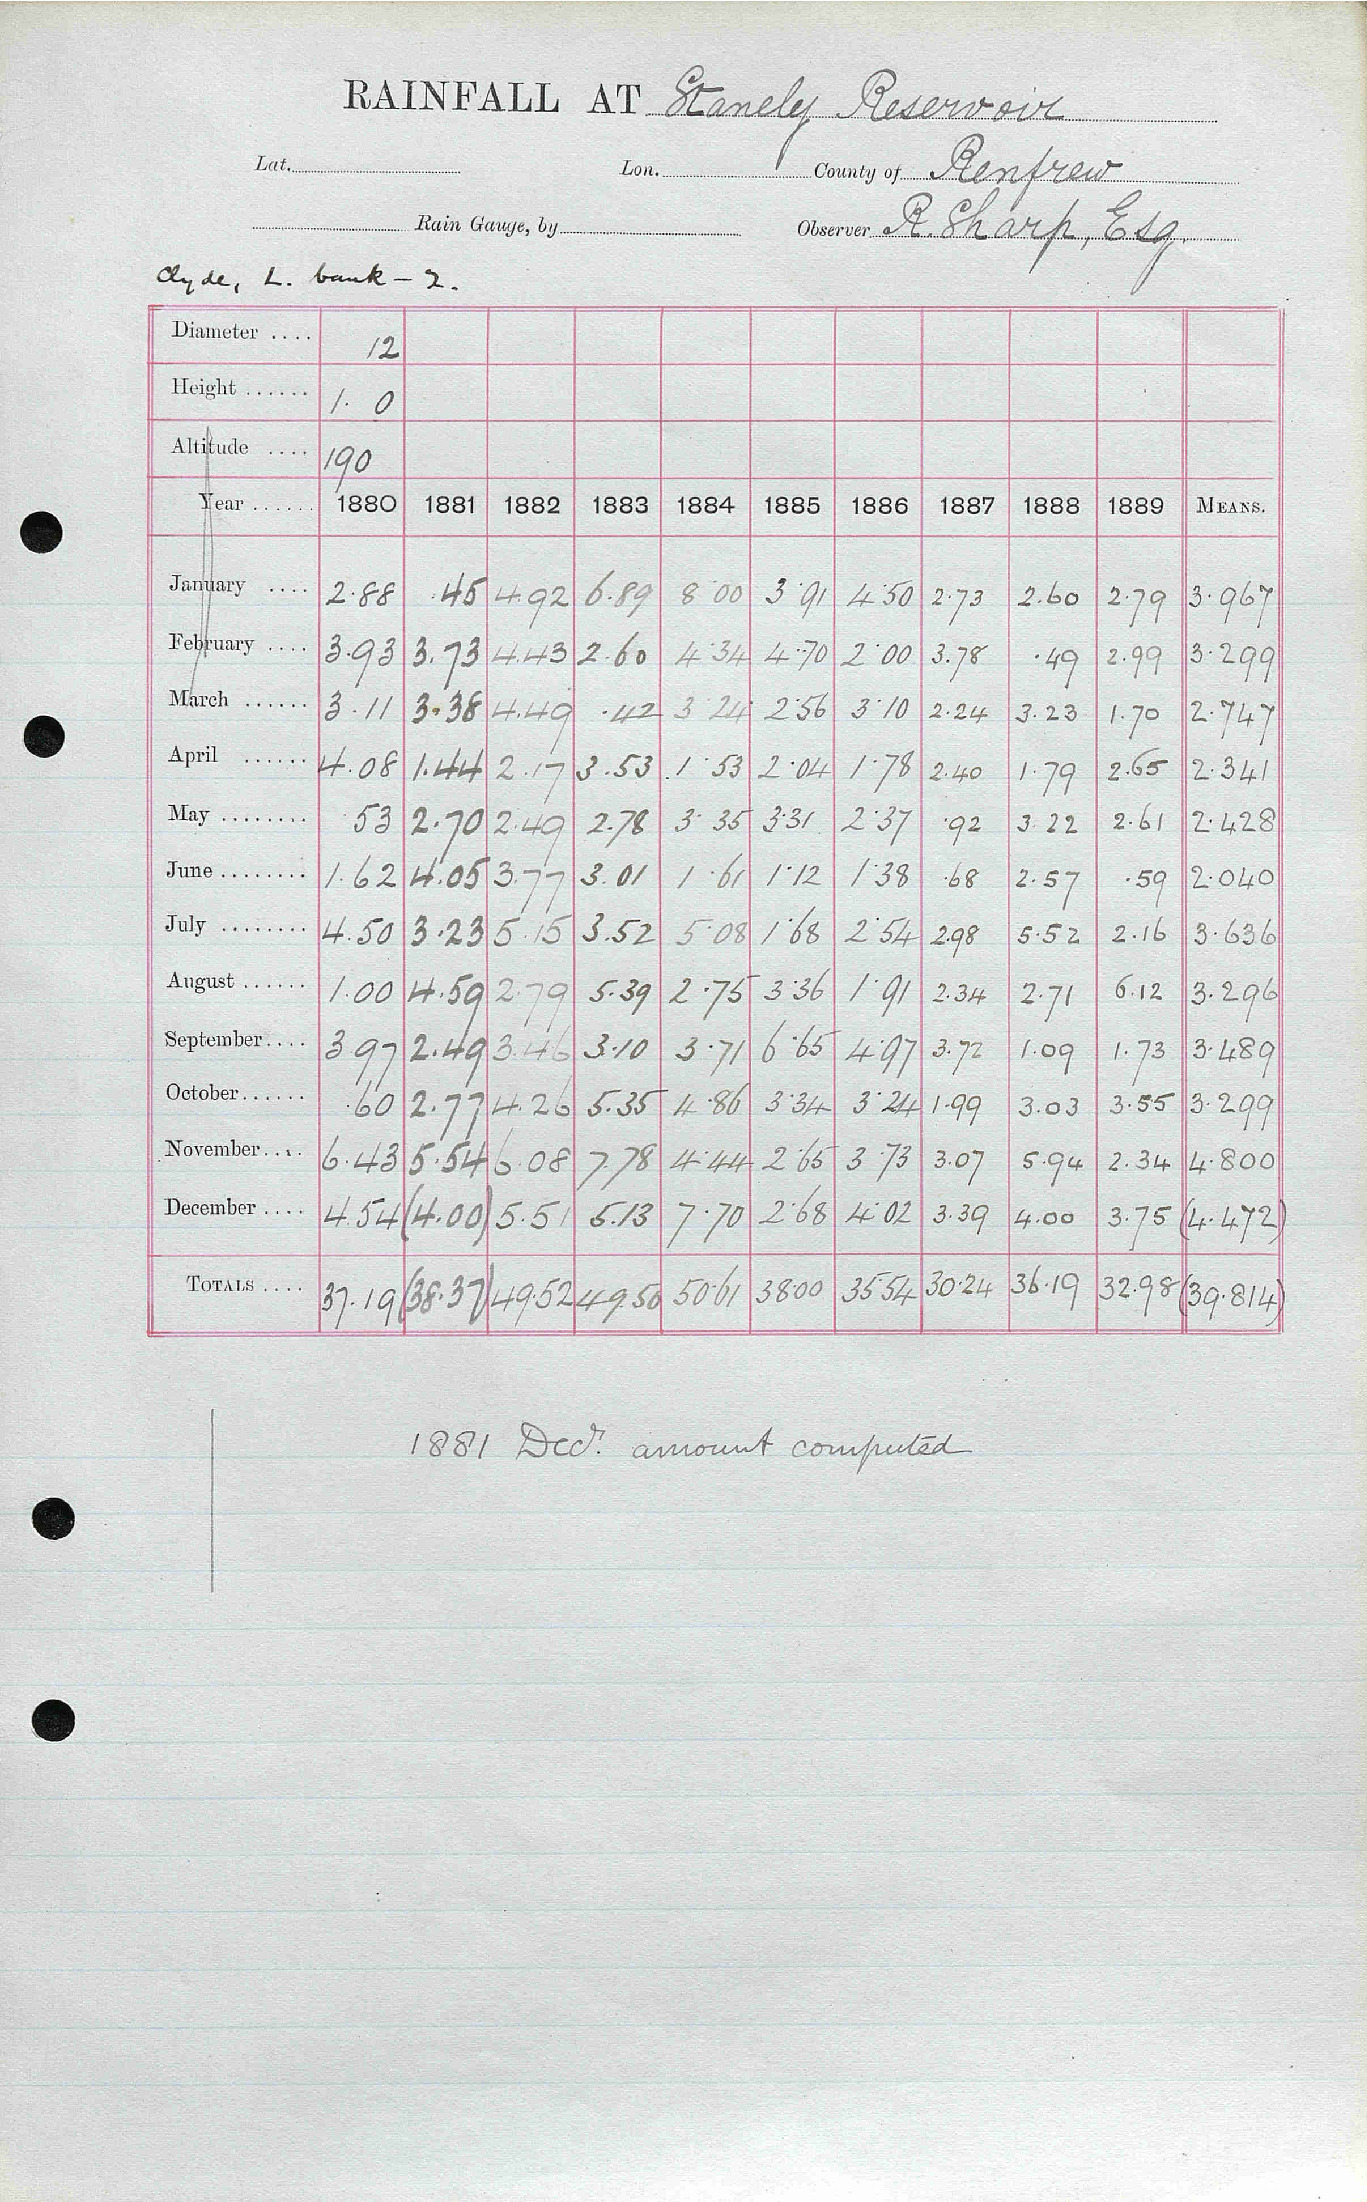 RAINFALL AT Stanely Reservoir
Lat. Lon. County of Renfrew
Rain Gauge, by Observer R. Sharp, Esq.
Clyde, L. bank - 2.
Diameter .... 12
Height ...... 1. 0
Altitude .... 190
Year ...... 1880 1881 1882 1883 1884 1885 1886 1887 1888 1889 MEANS.
January .... 2.88 .45 4.92 6.89 8.00 3.91 4.50 2.73 2.60 2.79 3.967
February .... 3.93 3.73 4.43 2.60 4.34 4.70 2.00 3.78 .49 2.99 3.299
March ...... 3.11 3.38 4.49 .42 3.24 2.56 3.10 2.24 3.23 1.70 2.747
April ...... 4.08 1.44 2.17 3.53 1.53 2.04 1.78 2.40 1.79 2.65 2.341
May ........ 53 2.70 2.49 2.78 3.35 3.31 2.37 .92 3.22 2.61 2.428
June ........ 1.62 4.05 3.77 3.01 1.61 1.12 1.38 .68 2.57 .59 2.040
July ........ 4.50 3.23 5.15 3.52 5.08 1.68 2.54 2.98 5.52 2.16 3.636
August ...... 1.00 4.59 2.79 5.39 2.75 3.36 1.91 2.34 2.71 6.12 3.296
September .... 3 97 2.49 3.46 3.10 3.71 6.65 4.97 3.72 1.09 1.73 3.489
October ...... .60 2.77 4.26 5.35 4.86 3.34 3.24 1.99 3.03 3.55 3.299
November .... 6.43 5.54 6.08 7.78 4.44 2.65 3.73 3.07 5.94 2.34 4.800
December .... 4.54 (4.00) 5.51 5.13 7.70 2.68 4.02 3.39 4.00 3.75 (4.472)
TOTALS .... 37.19 (38.37) 49.52 49.50 50.61 38.00 35.54 30.24 36.19 32.98 (39.814)
1881 Decr. amount computed